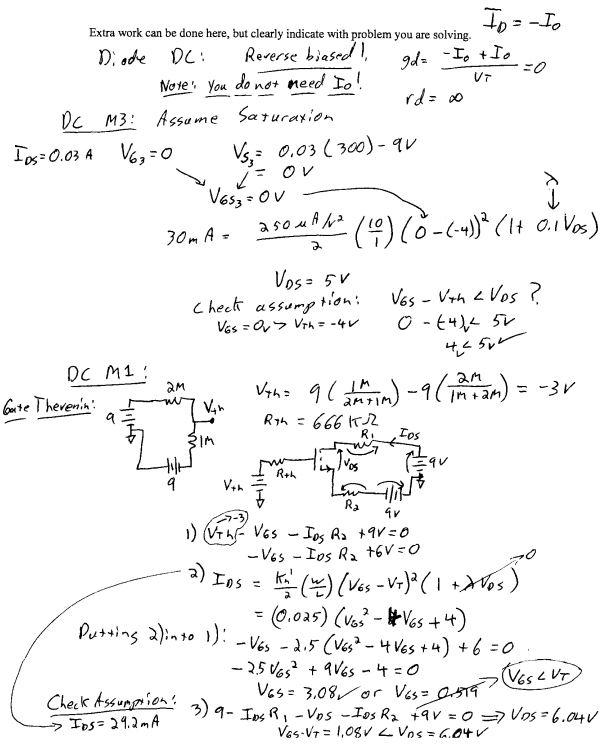 Extra work can be done here, but clearly indicate with problem you are solving.
I_D = -I_0
Diode DC: Reverse biased!
Note: You do not need I_0!
gd = (-I_0 + I_0)/V_T = 0
rd = ∞
DC M3: Assume Saturation
I_DS = 0.03 A V_G3 = 0 V_S3 = 0.03(300) - 9V
= 0V
V_GS3 = 0V
λ
30mA = (250 μA/V²)/2 (10/1) (0-(-4))² (1 + 0.1V_DS)
V_DS = 5V
Check assumption: V_GS - V_th < V_DS ?
V_GS = 0V > V_th = -4V 0 - (-4) < 5V
4 < 5V ✓
DC M1:
Gate Thevenin:
2M
V_th
9
1M
9
V_th = 9(1M/(2M+1M)) - 9(2M/(1M+2M)) = -3V
R_TH = 666 KΩ
R_1 I_DS
V_DS
R_th
V_th
9V
R_2
9V
1) V_Th - V_GS - I_DS R_2 + 9V = 0
-3
-V_GS - I_DS R_2 + 6V = 0
2) I_DS = Kn'/2 (W/L) (V_GS - V_T)² (1 + λV_DS)
0
= (0.025) (V_GS² - 4V_GS + 4)
Putting 2) into 1): -V_GS - 2.5(V_GS² - 4V_GS + 4) + 6 = 0
-2.5V_GS² + 9V_GS - 4 = 0
V_GS < V_T
V_GS = 3.08 ✓ or V_GS = 0.519
Check Assumption:
I_DS = 29.2mA
3) 9 - I_DS R_1 - V_DS - I_DS R_2 + 9V = 0 ⇒ V_DS = 6.04V
V_GS - V_T = 1.08V < V_DS = 6.04V